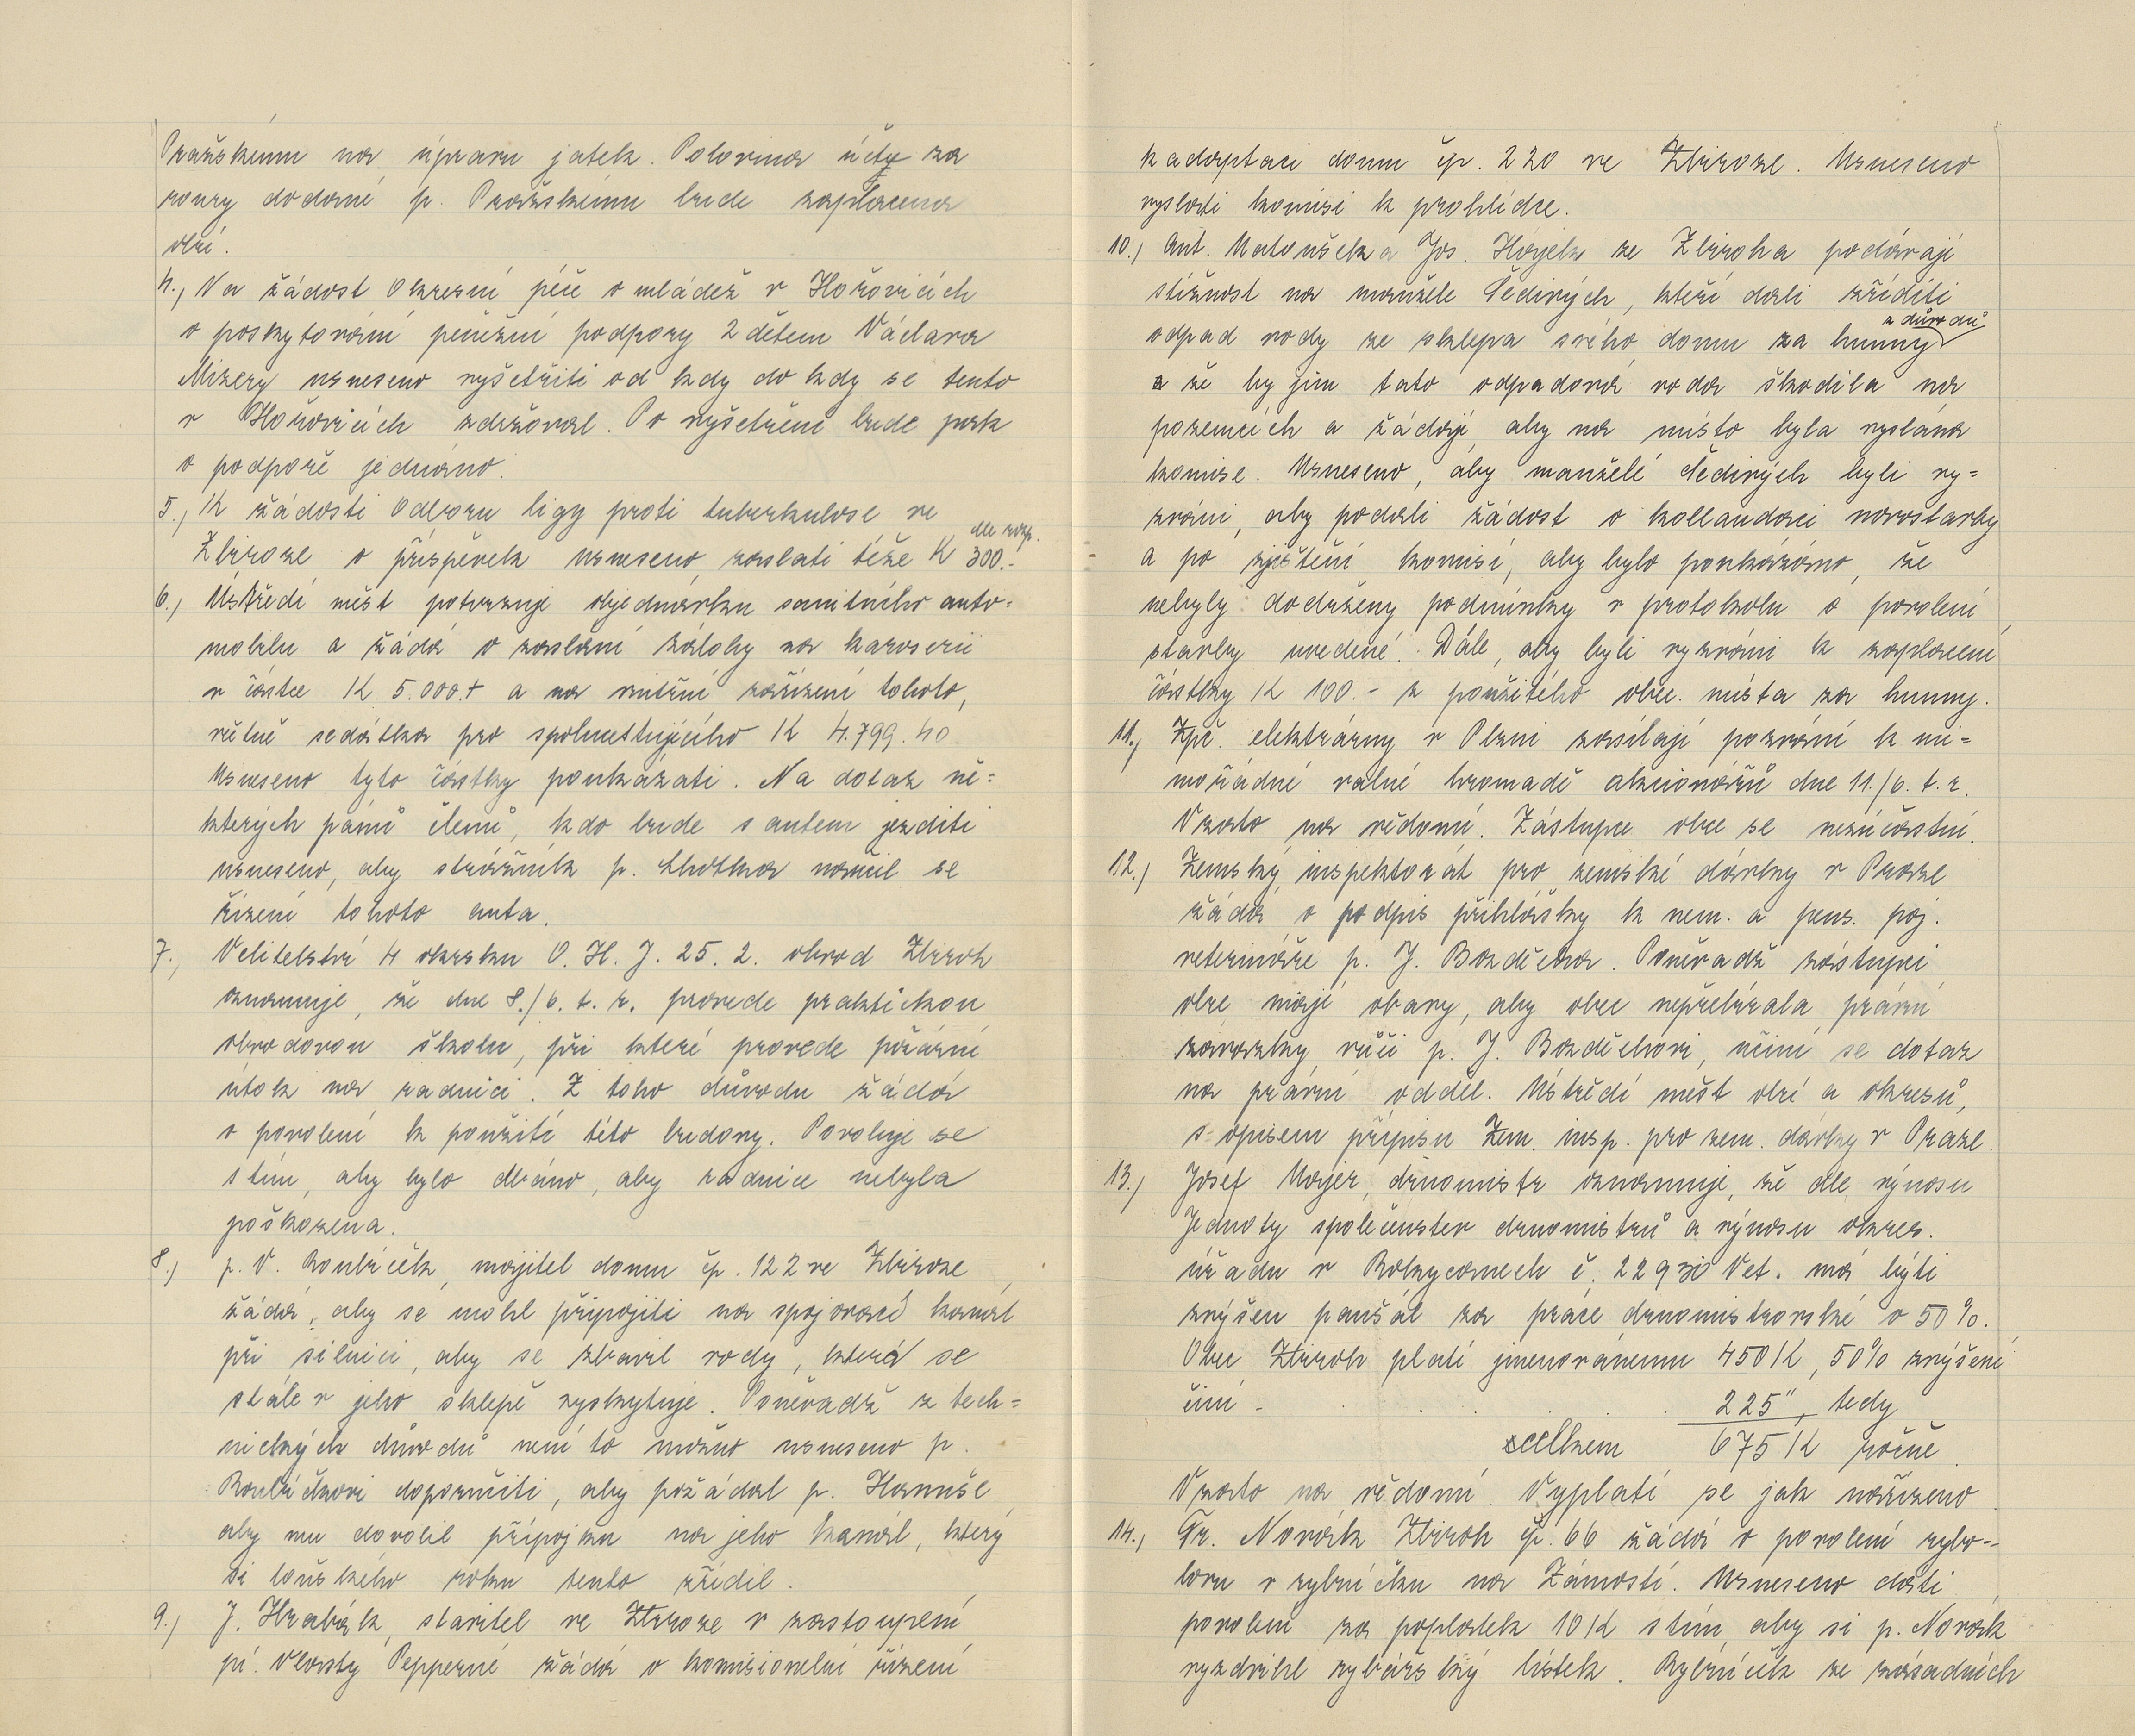 Pražskému na úpravu jatek. Polovina účtu za
roury dodané p. Pražskému bude zaplacena
obcí.
4., Na žádost Okresní péče o mládež v Hořovicích
o poskytování peněžní podpory 2 dětem Václava
Mizery usneseno vyšetřiti od kdy do kdy se tento
v Hořovicích zdržoval. Po vyšetření bude pak
o podpoře jednáno.
5., K žádosti Odboru ligy proti tuberkulose ve
Zbiroze o příspěvek usneseno, zaslati téže K 300.- dle rozp.
6., Ústředí měst potvrzuje objednávku sanitního auto=
mobilu a žádá o zaslání zálohy na karoserii
v částce K 5.000.+ a na vnitřní zařízení tohoto,
včetně sedátka pro spolucestujícího K 4.799.40
Usneseno tyto částky poukázati. Na dotaz ně=
kterých pánů členů, kdo bude s autem jezditi
usneseno, aby strážník p. Lhotka naučil se
řízení tohoto auta.
7., Velitelství 4 okrsku O. H. J. 25. 2. obvod Zbiroh
oznamuje, že dne 8./6. t. r. provede praktickou
obvodovou školu, při které provede požární
útok na radnici. Z toho důvodu žádá
o povolení k použití této budovy. Povoluje se
s tím, aby bylo dbáno, aby radnice nebyla
poškozena.
8.) p. V. Roubíček, majitel domu čp. 122 ve Zbiroze,
žádá, aby se mohl připojiti na spojovací kanál
při silnici, aby se zbavil vody, která se
stále v jeho sklepě vyskytuje. Poněvadž z tech=
nických důvodů není to možno usneseno p.
Roubíčkovi doporučiti, aby požádal p. Hanuše
aby mu dovolil přípojku na jeho kanál, který
si loňského roku tento zřídil.
9.) J. Hrabák, stavitel ve Zbiroze v zastoupení
pí. Vlasty Pepperné žádá o komisionelní řízení
k adaptaci domu čp. 220 ve Zbiroze. Usneseno
vyslati komisi k prohlídce.
10.) Ant. Matoušek a Jos. Hájek ze Zbiroha podávají
stížnost na manžele Šedivých, kteří dali zříditi
odpad vody ze sklepa svého domu za humny z důvodů
a že by jim tato odpadová voda škodila na
pozemcích a žádají, aby na místo byla vyslána
komise. Usneseno, aby manželé Šedivých byli vy=
zváni, aby podali žádost o kollaudaci novostavby
a po zjištění komisí, aby bylo poukázáno, že
nebyly dodrženy podmínky v protokolu o povolení
stavby uvedené. Dále, aby byli vyzváni k zaplacení
částky K 100.- z použitého obec. místa za humny.
11.) Zpč. elektrárny v Plzni zasílají pozvání k mi=
mořádné valné hromadě akcionářů dne 11./6. t. r.
Vzato na vědomí. Zástupce obce se nezúčastní.
12.) Zemský inspektorát pro zemské dávky v Praze
žádá o podpis přihlášky k nem. a pens. poj.
veterináře p. J. Bozděcha. Poněvadž zástupci
obce mají obavy, aby obec nepřebírala právní
závazky vůči p. J. Bozděchovi, učiní se dotaz
na právní odděl. Ústředí měst obcí a okresů,
s opisem přípisu Zem. insp. pro zem. dávky v Praze.
13.) Josef Majer, drnomistr oznamuje, že dle výnosu
Jednoty společenstev drnomistrů a výnosu okres.
úřadu v Rokycanech č. 22930 Vet. má býti
zvýšen paušál za práce drnomistrovské o 50%.
Obec Zbiroh platí jmenovanému 450 K, 50% zvýšení
činí - . . . 225 ", tedy
celkem 675 K ročně.
Vzato na vědomí. Vyplatí se jak nařízeno.
14., Fr. Novák Zbiroh čp. 66 žádá o povolení rybo=
lovu v rybníčku na Zámostí. Usneseno dáti
povolení za poplatek 10 K s tím, aby si p. Novák
vyzdvihl rybářský lístek. Rybníček ze zásadních